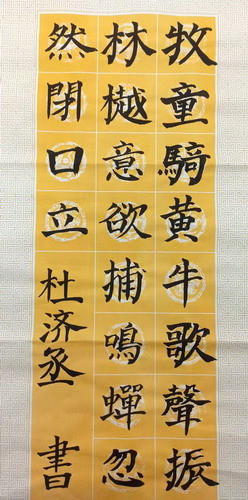 牧童騎黃牛歌聲振
林樾意欲捕鳴蟬忽
然閉口立
杜济丞書